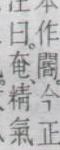 本作閣今正
曰奄精氣